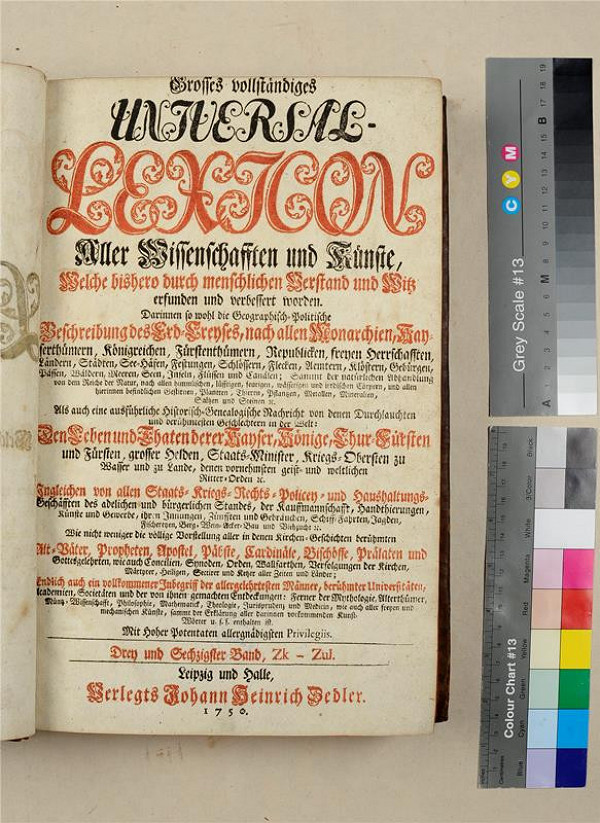 Grosses vollständiges
UNIVERSAL-
LEXICON
Aller Wissenschafften und Künste,
Welche bishero durch menschlichen Verstand und Witz
erfunden und verbessert worden.
Darinnen so wohl die Geographisch-Politische
Beschreibung des Erd-Creyses, nach allen Monarchien, Kay-
serthümern, Königreichen, Fürstenthümern, Republicken, freyen Herrschafften,
Ländern, Städten, See-Häfen, Festungen, Schlössern, Flecken, Aemtern, Klöstern, Gebürgen,
Pässen, Wäldern, Meeren, Seen, Inseln, Flüssen und Canälen; Sammt der natürlichen Abhandlung
von dem Reiche der Natur, nach allen himmlischen, lüfftigen, feurigen, wässerigen und irrdischen Cörpern, und allen
hierinnen befindlichen Gestirnen, Planeten, Thieren, Pflantzen, Metallen, Mineralien,
Saltzen und Steinen ꝛc.
Als auch eine ausführliche Historisch-Genealogische Nachricht von denen Durchlauchten
und berühmtesten Geschlechtern in der Welt:
Den Leben und Thaten derer Kayser, Könige, Chur-Fürsten
und Fürsten, grosser Helden, Staats-Minister, Kriegs-Obersten zu
Wasser und zu Lande, denen vornehmsten geist- und weltlichen
Ritter-Orden ꝛc.
Ingleichen von allen Staats- Kriegs- Rechts- Policey- und Haushaltungs-
Geschäfften des adelichen und bürgerlichen Standes, der Kauffmannschafft, Handthierungen,
Künste und Gewerbe, ihren Innungen, Zünfften und Gebräuchen, Schiff-Fahrten, Jagden,
Fischereyen, Berg- Wein- Acker-Bau und Viehzucht ꝛc.
Wie nicht weniger die völlige Vorstellung aller in denen Kirchen-Geschichten berühmten
Alt-Väter, Propheten, Apostel, Päbste, Cardinäle, Bischöffe, Prälaten und
Gottesgelehrten, wie auch Concilien, Synoden, Orden, Wallfarthen, Verfolgungen der Kirchen,
Märtyrer, Heiligen, Sectirer und Ketzer aller Zeiten und Länder;
Endlich auch ein vollkommener Inbegriff der allergelehrtesten Männer, berühmter Universitäten,
Academien, Societäten und der von ihnen gemachten Entdeckungen: Ferner der Mythologie, Alterthümer,
Müntz-Wissenschafft, Philosophie, Mathematick, Theologie, Jurisprudentz und Medicin, wie auch aller freyen und
mechanischen Künste, sammt der Erklärung aller darinnen vorkommenden Kunst-
Wörter u. s. f. enthalten ist.
Mit Hoher Potentaten allergnädigsten Privilegiis.
Drey und Sechzigster Band, Zk - Zul.
Leipzig und Halle,
Verlegts Johann Heinrich Zedler.
1750.
Grey Scale #13
C Y M
A 1 2 3 4 5 6 M 8 9 10 11 12 13 14 15 B 17 18 19
Colour Chart #13
Blue Cyan Green Yellow Red Magenta White 3/Color Black